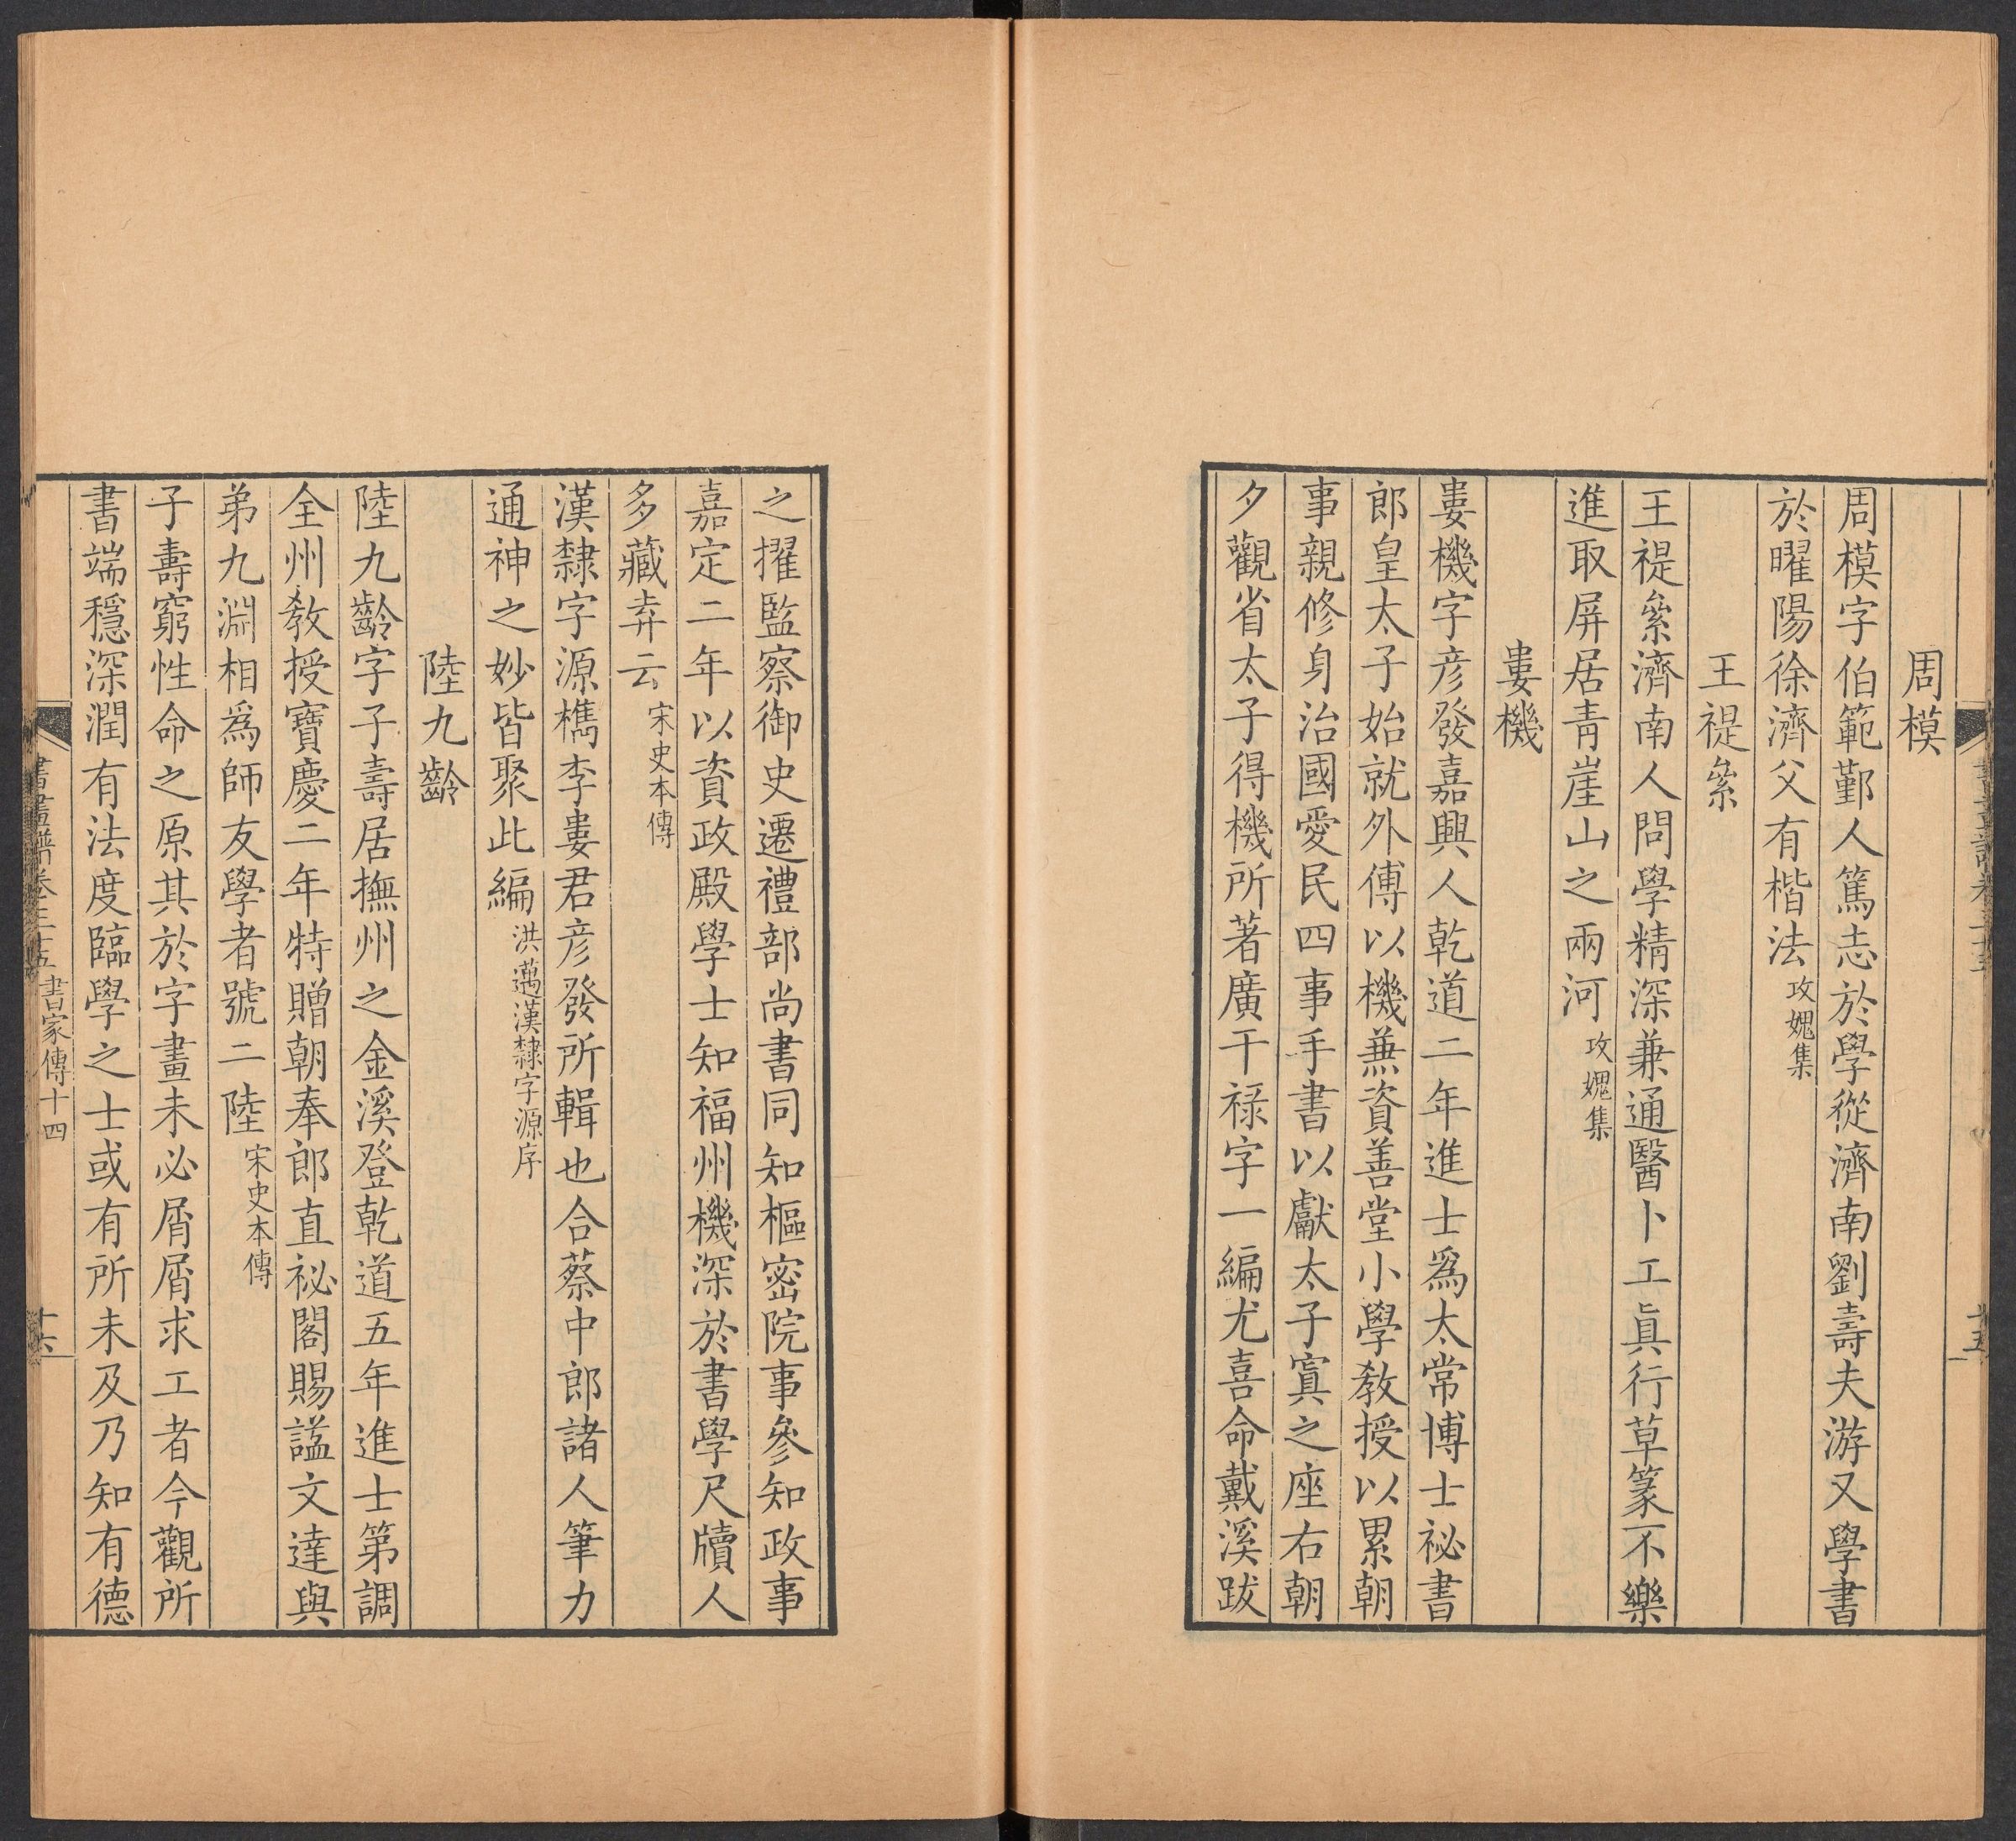 周模
周模字伯範鄞人篤志於學從濟南劉壽夫游又學書
於曜陽徐濟父有楷法攻媿集
王禔絫
王禔絫濟南人問學精深兼通醫卜工眞行草篆不樂
進取屏居靑崖山之兩河攻媿集
婁機
婁機字彥發嘉興人乾道二年進士爲太常博士祕書
郎皇太子始就外傅以機兼資善堂小學敎授以累朝
事親修身治國愛民四事手書以獻太子寘之座右朝
夕觀省太子得機所著廣干祿字一編尤喜命戴溪跋
之擢監察御史遷禮部尚書同知樞密院事參知政事
嘉定二年以資政殿學士知福州機深於書學尺牘人
多藏弆云宋史本傳
漢隸字源檇李婁君彥發所輯也合蔡中郎諸人筆力
通神之妙皆聚此編洪邁漢隸字源序
陸九齡
陸九齡字子壽居撫州之金溪登乾道五年進士第調
全州敎授寶慶二年特贈朝奉郎直祕閣賜諡文達與
弟九淵相爲師友學者號二陸宋史本傳
子壽窮性命之原其於字畫未必屑屑求工者今觀所
書端穩深潤有法度臨學之士或有所未及乃知有德
書畫譜卷三十五書家傳十四 十六